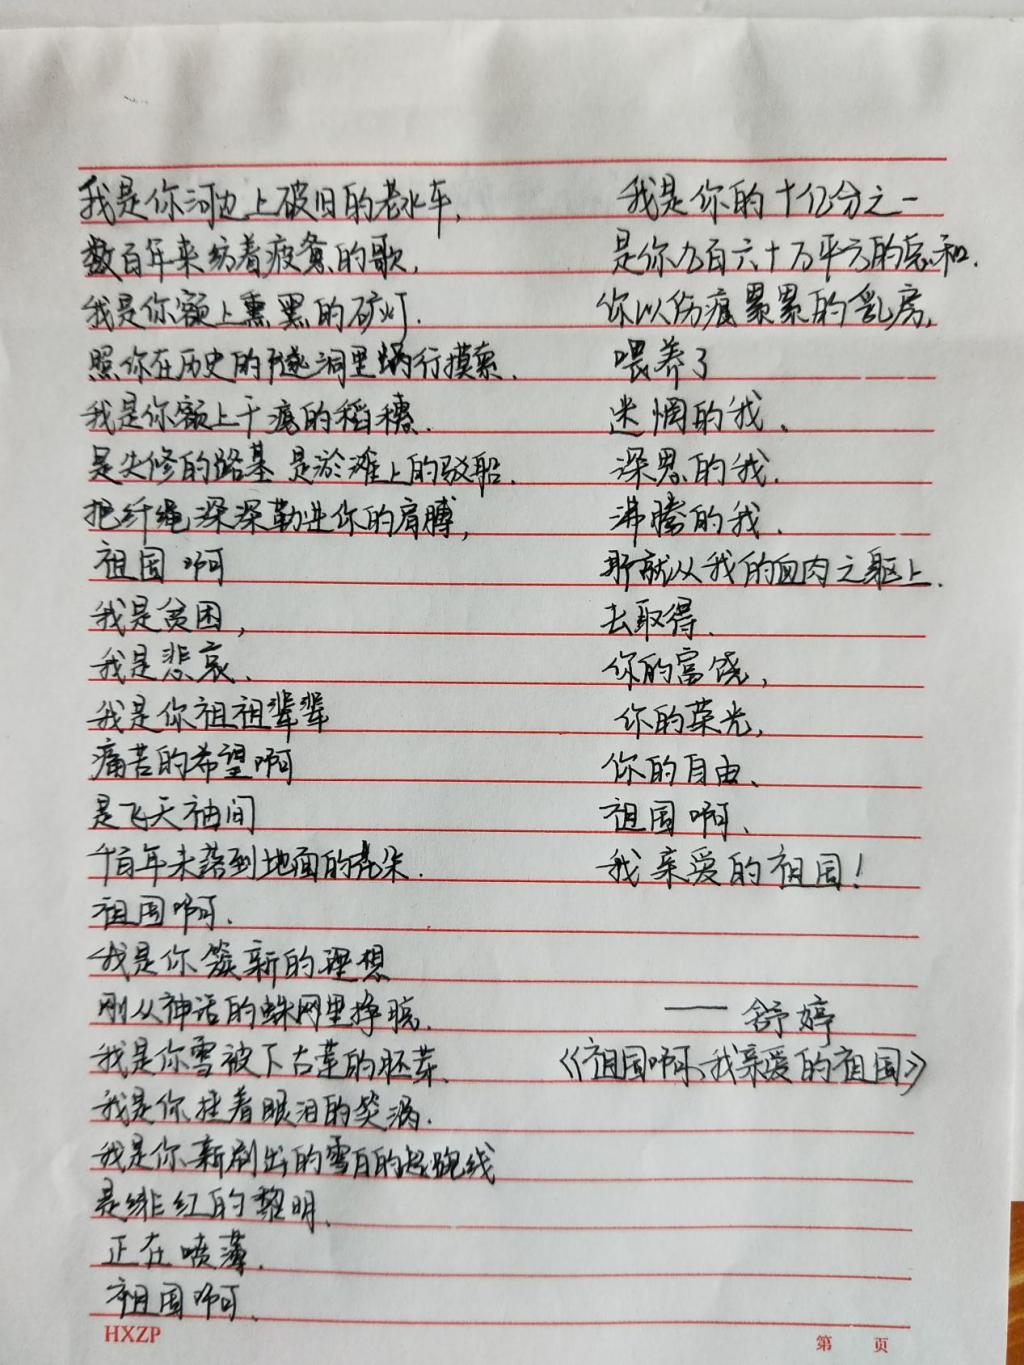 我是你河边上破旧的老水车,
数百年来纺着疲惫的歌,
我是你额上熏黑的矿灯.
照你在历史的隧洞里蜗行摸索.
我是你额上干瘪的稻穗.
是失修的路基 是淤滩上的驳船.
把纤绳深深勒进你的肩膊,
祖国啊
我是贫困,
我是悲哀、
我是你祖祖辈辈
痛苦的希望啊
是飞天袖间
千百年未落到地面的花朵.
祖国啊.
我是你簇新的理想
刚从神话的蛛网里挣脱.
我是你雪被下古莲的胚芽、
我是你挂着眼泪的笑涡.
我是你新刷出的雪白的起跑线
是绯红的黎明、
正在喷薄.
祖国啊.
我是你的十亿分之一
是你九百六十万平方的总和.
你以伤痕累累的乳房,
喂养了
迷惘的我、
深思的我.
沸腾的我.
那就从我的血肉之躯上.
去取得.
你的富饶,
你的荣光,
你的自由、
祖国啊、
我亲爱的祖国!
—— 舒婷
《祖国啊、我亲爱的祖国》
HXZP
第 页